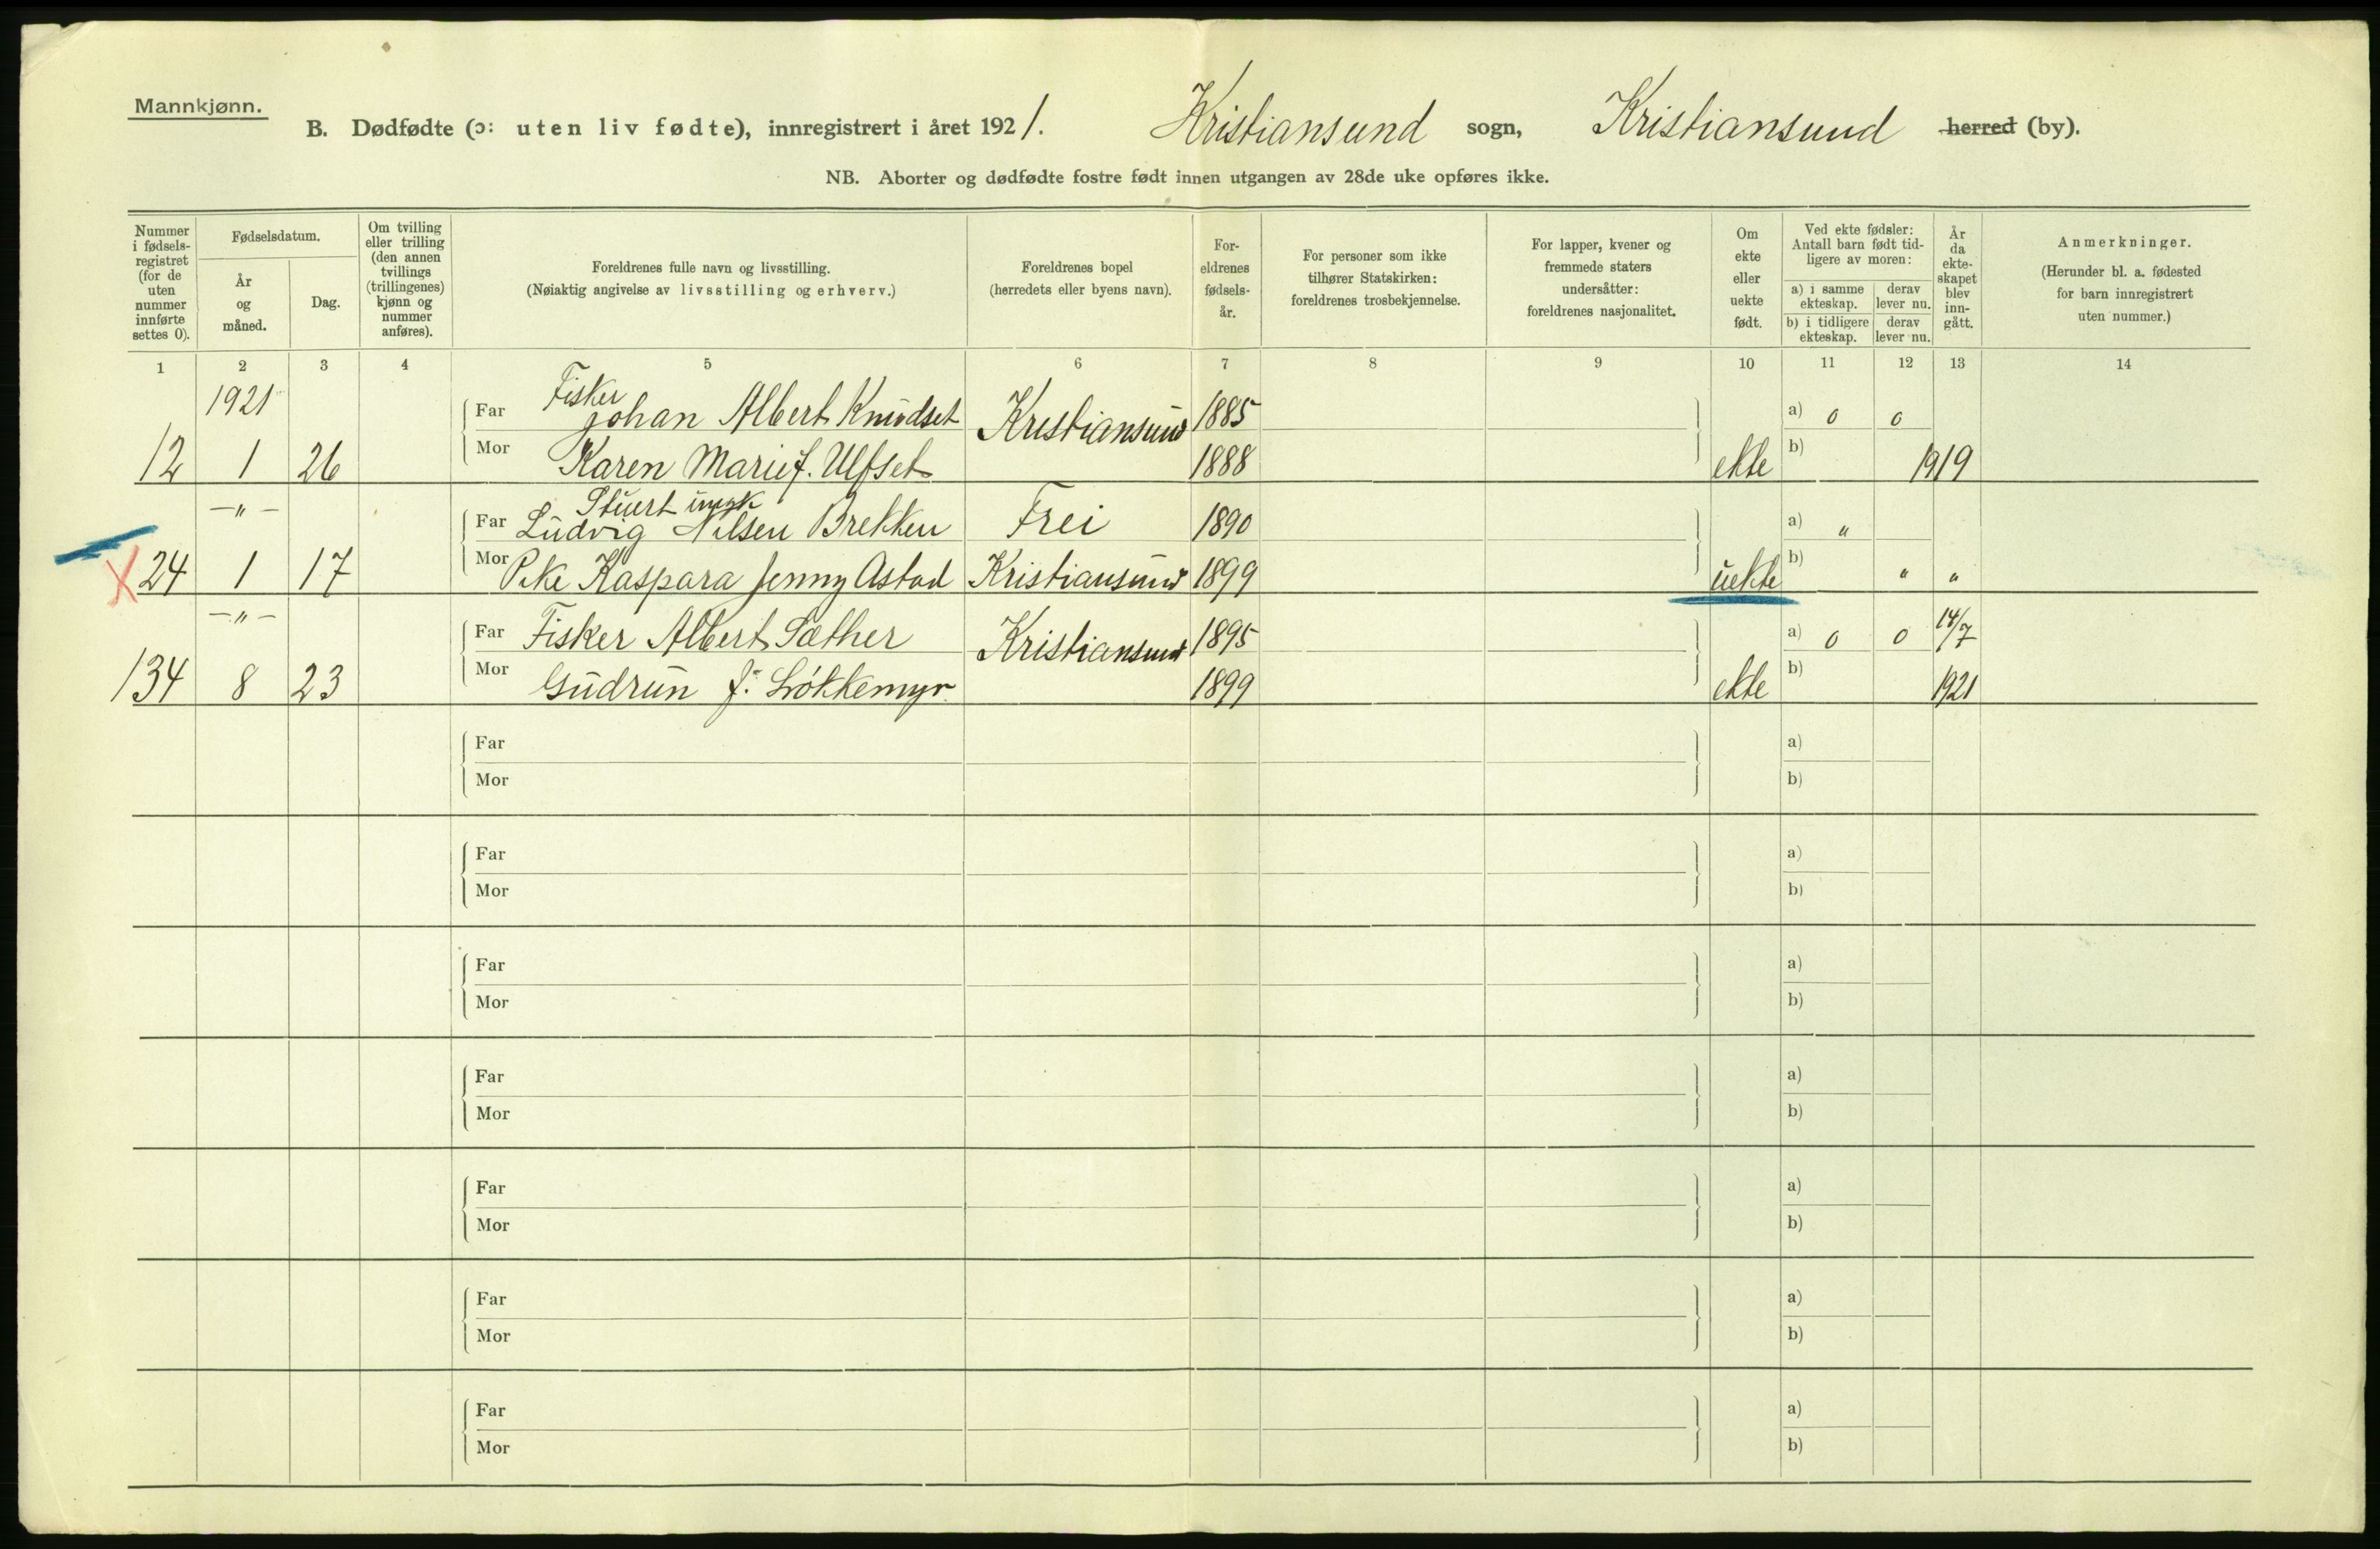 Mannkjønn.
B. Dødfødte (ɔ: uten liv fødte), innregistrert i året 1921. Kristiansund sogn, Kristiansund herred (by).
NB. Aborter og dødfødte fostre født innen utgangen av 28de uke opføres ikke.
Nummer i fødsels-registret (for de uten nummer innførte settes 0).
Fødselsdatum.
År og måned.
Dag.
Om tvilling eller trilling (den annen tvillings (trillingenes) kjønn og nummer anføres).
Foreldrenes fulle navn og livsstilling.
(Nøiaktig angivelse av livsstilling og erhverv.)
Foreldrenes bopel
(herredets eller byens navn).
For-eldrenes fødsels-år.
For personer som ikke tilhører Statskirken: foreldrenes trosbekjennelse.
For lapper, kvener og fremmede staters undersåtter: foreldrenes nasjonalitet.
Om ekte eller uekte født.
Ved ekte fødsler: Antall barn født tid-ligere av moren:
a) i samme ekteskap. derav lever nu.
b) i tidligere ekteskap. derav lever nu.
År da ekte-skapet blev inn-gått.
Anmerkninger.
(Herunder bl. a. fødested for barn innregistrert uten nummer.)
1 2 3 4 5 6 7 8 9 10 11 12 13 14
1921 Fisker
Far Johan Albert Knudset Kristiansund 1885 a) 0 0
12 1 26 Mor Karen Marie f. Ulfset 1888 ekte b) 1919
—"— Stuert
Far Ludvig Nilsen Brekken Frei 1890 a) "
X 24 1 17 Mor Pike Kaspara Jenny Astad Kristiansund 1899 uekte b) " "
—"— Far Fisker Albert Sæther Kristiansund 1895 a) 0 0 14/7
134 8 23 Mor Gudrun f. Løkkemyr 1899 ekte b) 1921
Far a)
Mor b)
Far a)
Mor b)
Far a)
Mor b)
Far a)
Mor b)
Far a)
Mor b)
Far a)
Mor b)
Far a)
Mor b)